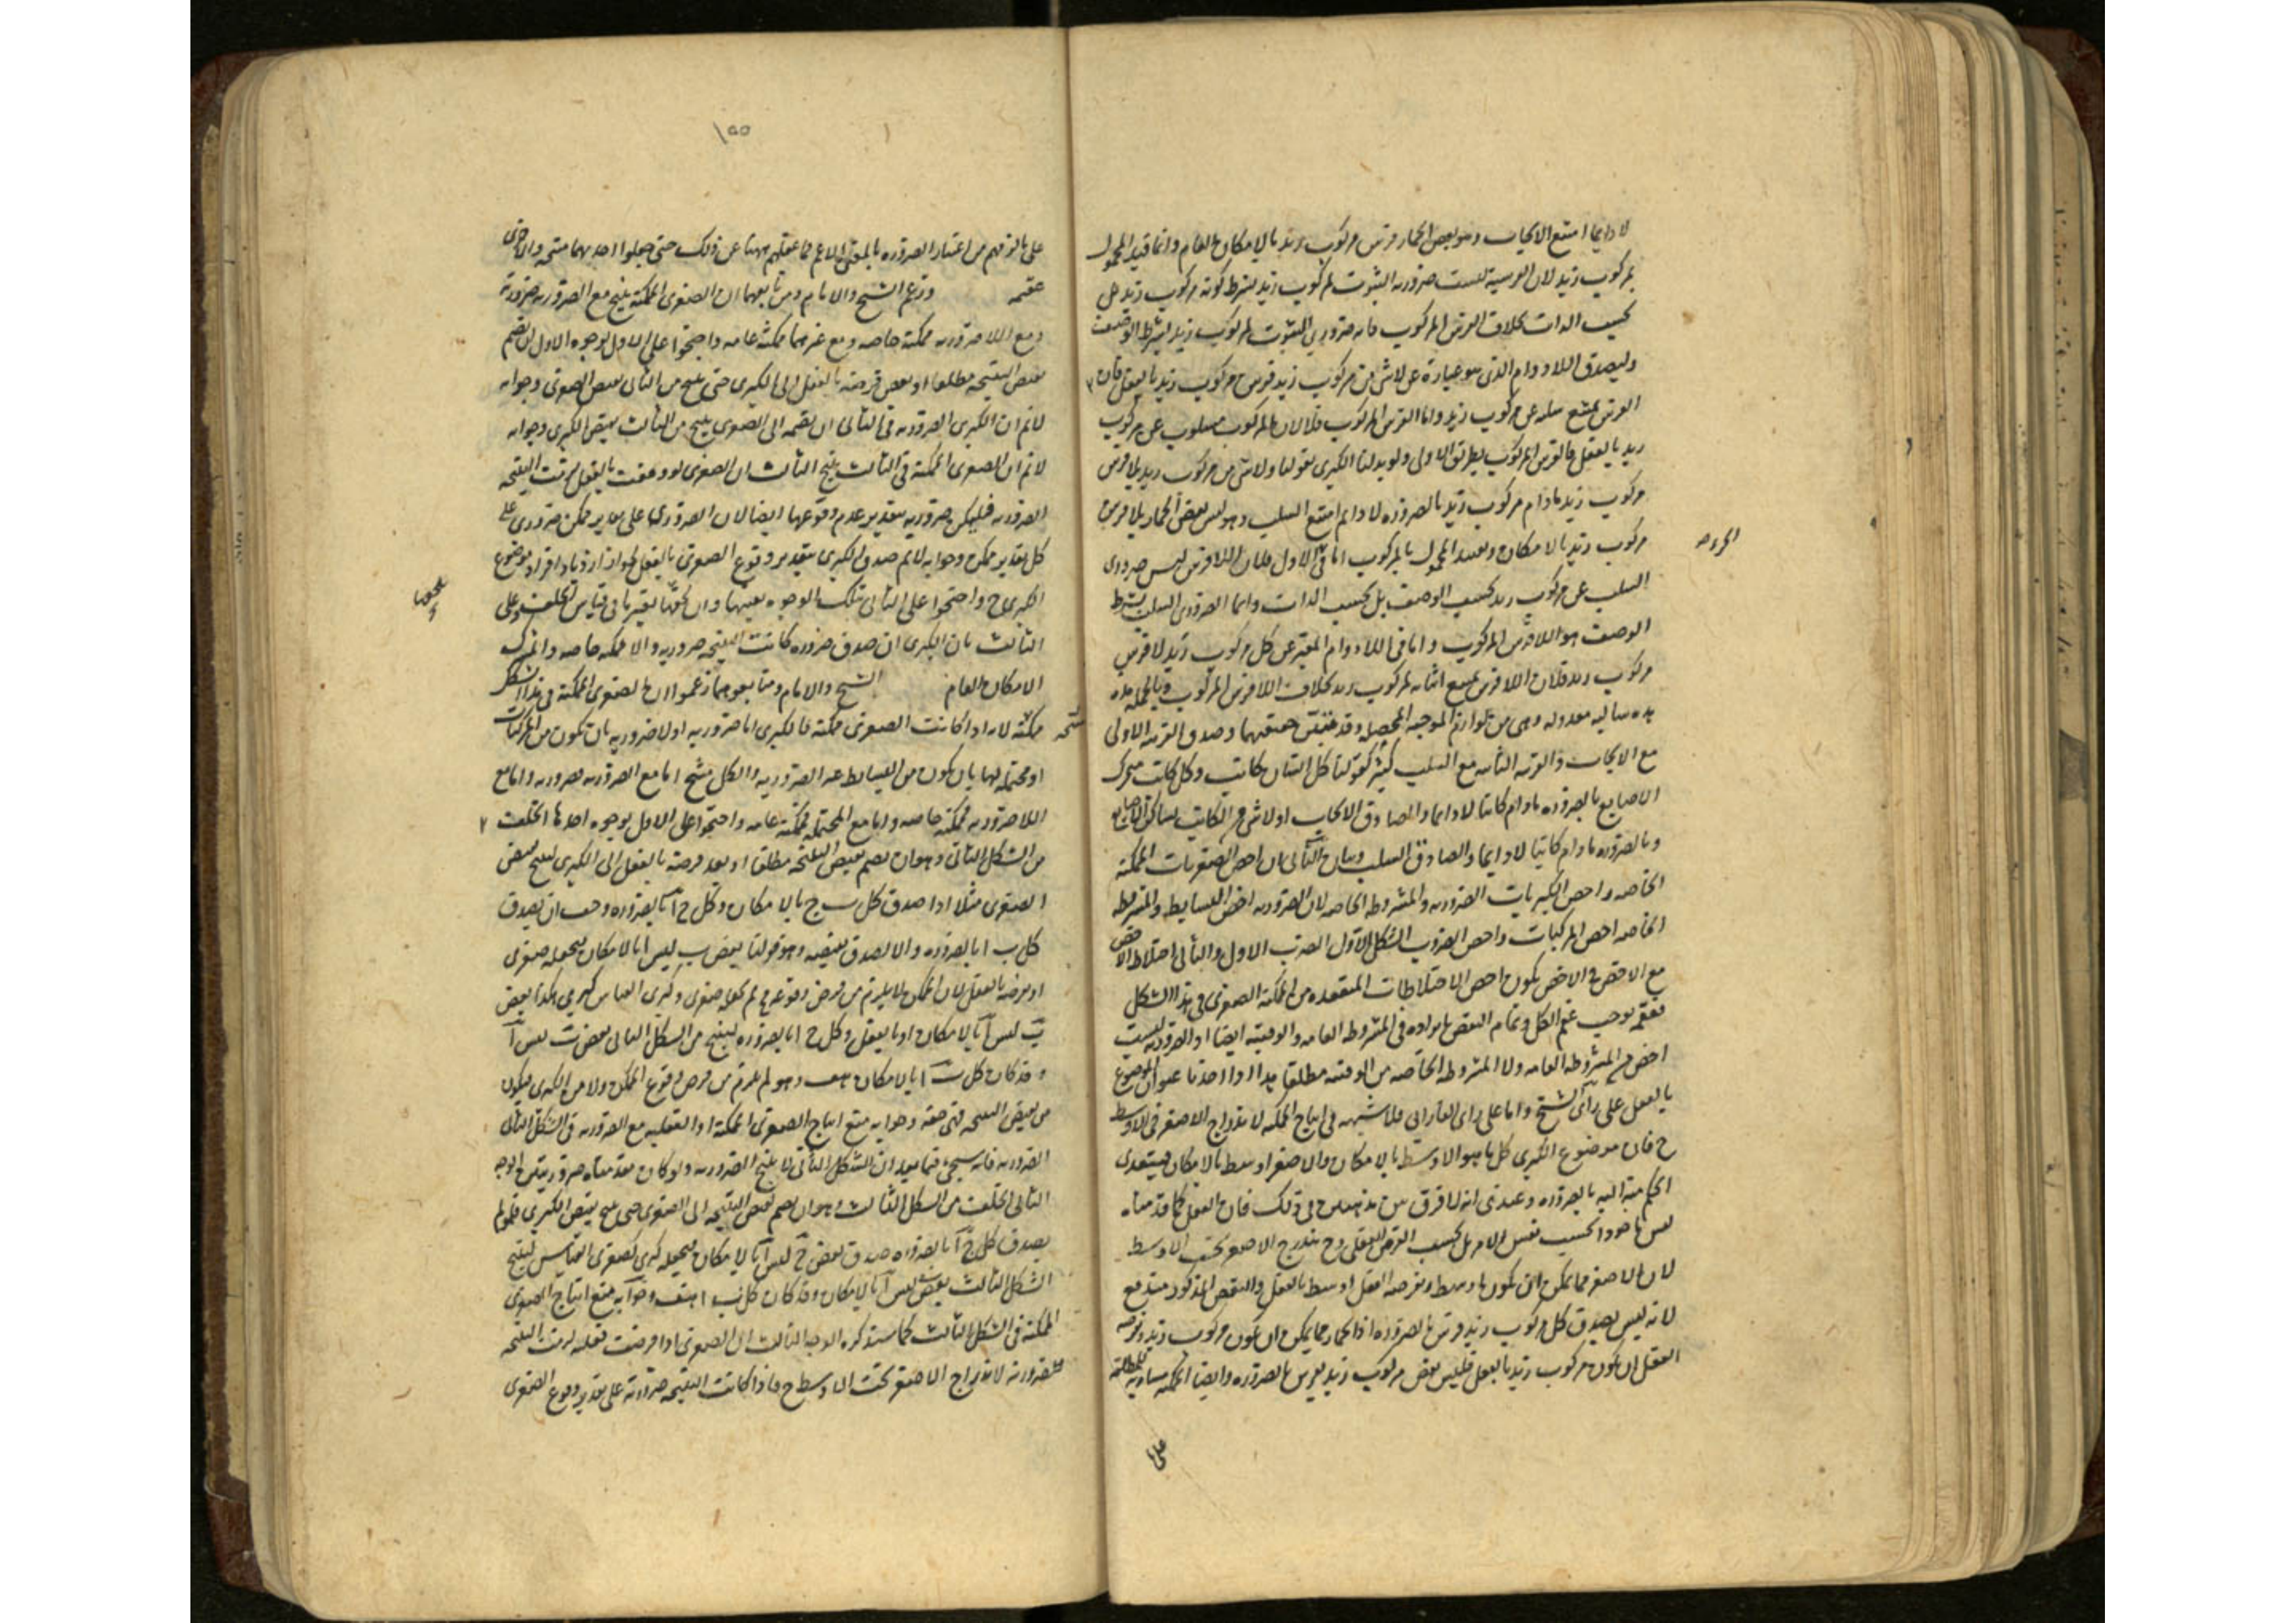 لا دايما امتنع الايجاب وهو بعض الحمار فرس مركوب زيد بالامكان العام وانما قيد المحمول
بمركوب زيد لان الفرسية ليست ضرورية الثبوت لمركوب زيد بشرط كونه مركوب زيد بل
بحسب الذات بخلاف الفرس المركوب فانه ضروري الثبوت لمركوب زيد بشرط الوصف
وليصدق اللادوام الذي هو عبارة عن لاشي من مركوب زيد فرس مركوب زيد بالفعل فان
الفرس يمتنع سلبه عن مركوب زيد واما الفرس المركوب فلان المركوب مسلوب عن مركوب
زيد بالفعل فالفرس المركوب بطريق الاولى ولو بدلنا الكبرى بقولنا ولاشي من مركوب زيد بلا فرس
مركوب زيد مادام مركوب زيد بالضرورة لا دايما امتنع السلب وهو ليس بعض الحمار بلا فرس
مركوب زيد بالامكان وتقييد المحمول بالمركوب اما في الاول فلان اللافرس ليس ضروري
السلب عن مركوب زيد بحسب الوصف بل بحسب الذات وانما الضروري السلب بشرط
الوصف هو اللافرس المركوب واما في اللادوام المعبر عن كل مركوب زيد لا فرس
مركوب زيد فلان اللافرس يمتنع اثباته لمركوب زيد بخلاف اللافرس المركوب وبالجملة
هذه سالبة معدولة وهي من لوازم الموجبة المحصلة وقد تبين حقيقتهما وصدق القرينة الاولى
مع الايجاب والقرينة الثانية مع السلب كثير كقولنا كل انسان كاتب وكل كاتب متحرك
الاصابع بالضرورة مادام كاتبا لا دايما والصادق الايجاب او لاشي من الكاتب بساكن الاصابع
وبالضرورة مادام كاتبا لا دايما والصادق السلب وبيان الثاني ان اخص الصغريات الممكنة
الخاصة واخص الكبريات الضرورية والمشروطة الخاصة لان الضرورية اخص البسايط والمشروطة
الخاصة اخص المركبات واخص الضروب الشكل الاول الضرب الاول والثاني اختلاط الاخص
مع الاخص في الاخص يكون اخص الاختلاطات المنعقدة من الممكنة الصغرى في هذا الشكل
فعقمه يوجب عقم الكل وتمام النقض بايراده في المشروطة العامة والوقتية ايضا اذ الضرورية ليست
اخص من المشروطة العامة ولا المشروطة الخاصة من الوقتية مطلقا هذا اذا اخذنا عنوان الموضوع
بالفعل على رأى الشيخ واما على راى الفارابى فلا شبهة في انتاج الممكنة لاندراج الاصغر في الاوسط
ح فان موضوع الكبرى كل ما هو الاوسط بالامكان والاصغر اوسط بالامكان فيتعدى
الحكم منه اليه بالضرورة وعندي انه لا فرق بين مذهبين في ذلك فان الفعل كما قدمناه
ليس ماخوذا بحسب نفس الامر بل بحسب الفرض العقلي وح يندرج الاصغر تحت الاوسط
لان الاصغر مما يمكن ان يكون اوسط ويفرضه العقل اوسط بالفعل والنقض المذكور مندفع
لانه ليس يصدق كل مركوب زيد فرس بالضرورة اذ الحمار مما يمكن ان يكون مركوب زيد ويفرضه
العقل ان يكون مركوب زيد بالفعل فليس بعض مركوب زيد بفرس بالضرورة وايضا الممكنة مساوية للمطلقة
على
١٥٥
على ما توهم من اعتبار الضرورة بالمعنى الاعم فما غفلهم ههنا عن ذلك حتى جعلوا احديهما منتجة والاخرى
عقيمة وزعم الشيخ والامام ومن تابعهما ان الصغرى الممكنة ينتج مع الضرورية ضرورية
ومع اللاضرورية ممكنة خاصة ومع غيرهما ممكنة عامة واحتجوا على الاول بوجوه الاول ان نضم
نقيض النتيجة مطلقا او بعد فرضه بالفعل الى الكبرى حتى ينتج من الثاني نقيض الصغرى وجوابه
لانم ان الكبرى الضرورية في الثاني ان نضمه الى الصغرى لينتج من الثالث نقيض الكبرى وجوابه
لانم ان الصغرى الممكنة في الثالث ينتج الثالث ان الصغرى لو وقعت بالفعل لزمت النتيجة
الضرورية فليكن ضرورية بتقدير عدم وقوعها ايضا لان الضروري على تقدير ممكن ضروري على
كل تقدير ممكن وجوابه لانم صدق الكبرى بتقدير وقوع الصغرى بالفعل لجواز ازدياد افراد موضوع
الكبرى ح واحتجوا على الثاني بتلك الوجوه بعينها
الثالث بان الكبرى ان صدق ضرورة كانت النتيجة ضرورية والا ممكنة خاصة والمشترك
الامكان العام الشيخ والامام ومتابعوهما زعموا ان الصغرى الممكنة في هذا الشكل
منتجة ممكنة لانه اذا كانت الصغرى ممكنة فالكبرى اما ضرورية او لا ضرورية بان تكون من المركبات
او محتملة لهما بان يكون من البسايط غير الضرورية والكل منتج اما مع الضرورية ضرورية واما مع
اللاضرورية ممكنة خاصة واما مع المحتملة ممكنة عامة واحتجوا على الاول بوجوه احدها الخلف
من الشكل الثاني وهو ان نضم نقيض النتيجة مطلقا او بعد فرضه بالفعل الى الكبرى لينتج نقيض
الصغرى مثلا اذا صدق كل ب ج بالامكان وكل ج ا بالضرورة وجب ان يصدق
كل ب ا بالضرورة والا لصدق نقيضه وهو قولنا بعض ب ليس ا بالامكان نجعله صغرى
او نفرضه بالفعل لان الممكن لا يلزم من فرض وقوعه مح ثم نجعله صغرى وكبرى القياس كبرى هكذا بعض
ب ليس ا بالامكان او بالفعل وكل ج ا بالضرورة لينتج من الشكل الثاني بعض ب ليس ا
وقد كان كل ب ا بالامكان هف وهو لم يلزم من فرض وقوع الممكن ولا من الكبرى فيكون
من نقيض النتيجة فهي حقة وجوابه منع انتاج الصغرى الممكنة او الفعلية مع الضرورية في الشكل الثاني
الضرورية فانه سيجيء فيما بعد ان الشكل الثاني لا ينتج الضرورية ولو كان مقدمتاه ضروريتين الوجه
الثاني الخلف من الشكل الثالث وهو ان نضم نقيض النتيجة الى الصغرى حتى ينتج نقيض الكبرى فلو لم
يصدق كل ج ا بالضرورة صدق بعض ج ليس ا بالامكان نجعله كبرى لصغرى القياس لينتج
الشكل الثالث بعض ليس ا بالامكان وقد كان كل ب ا هف وجوابه منع انتاج الصغرى
الممكنة في الشكل الثالث كما سنذكره الوجه الثالث ان الصغرى اذا فرضت فعلية لزمت النتيجة
ضرورية لاندراج الاصغر تحت الاوسط ح فاذا كانت النتيجة ضرورية على تقدير وقوع الصغرى